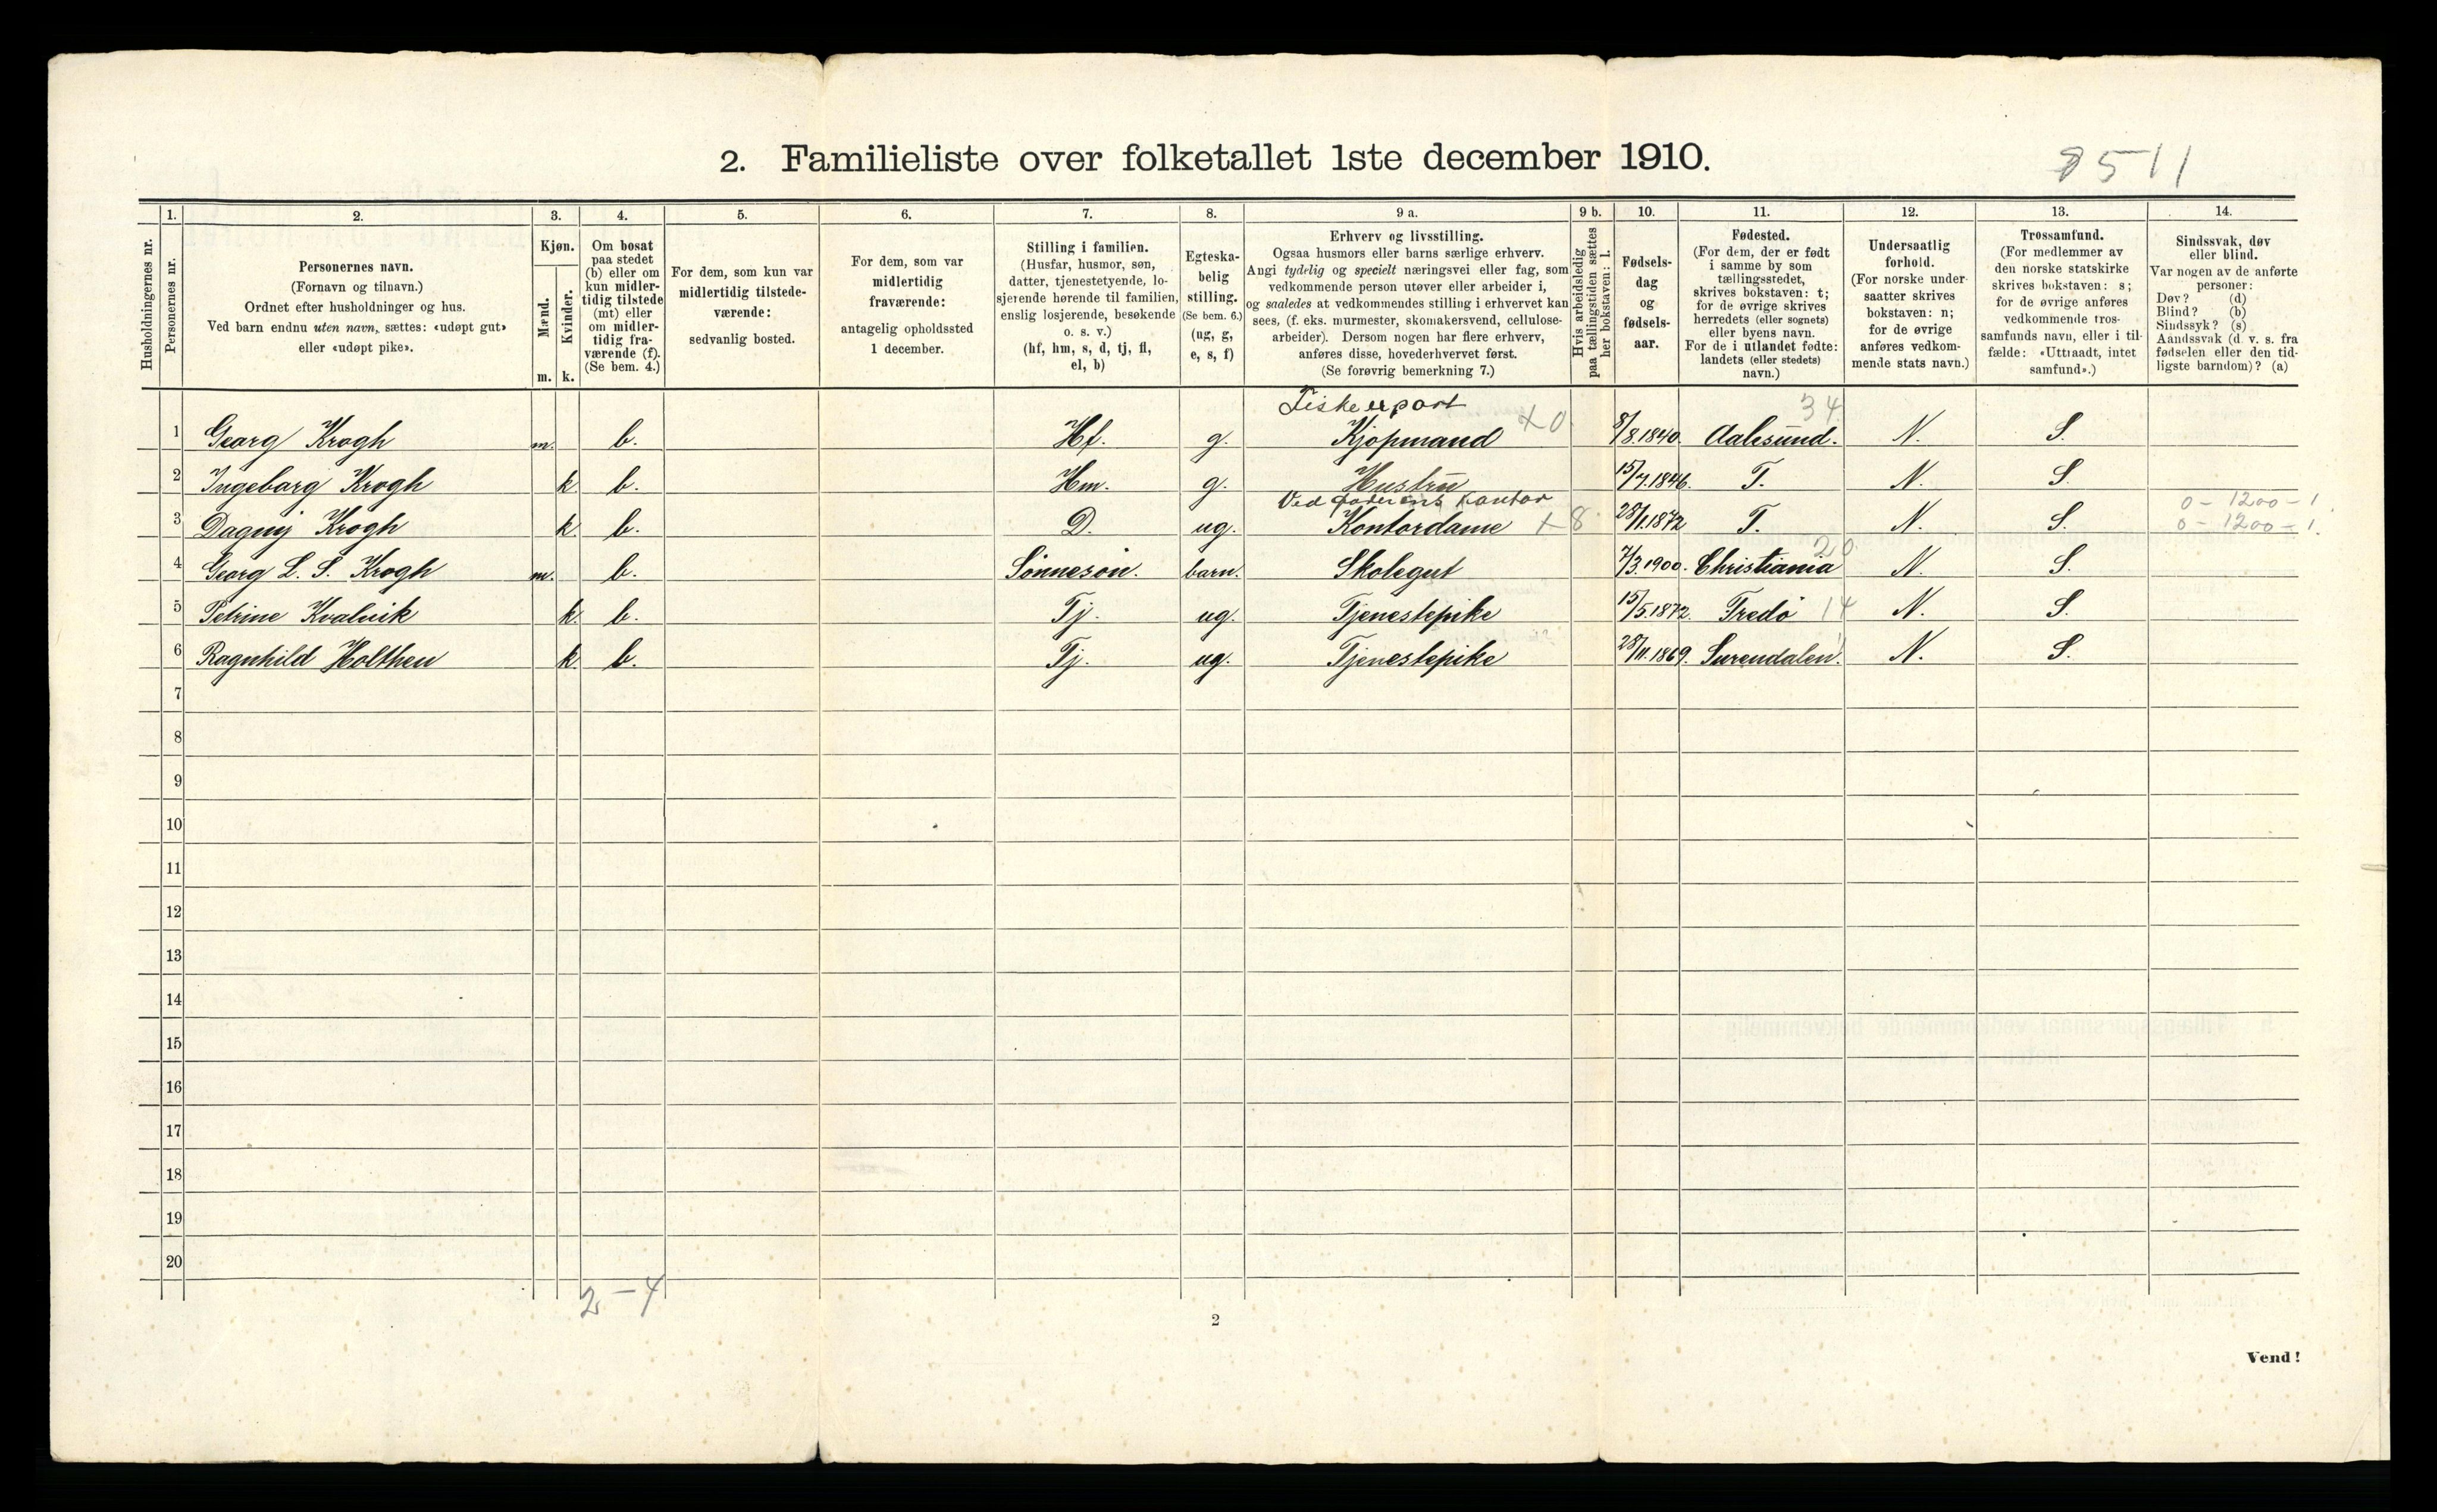 2. Familieliste over folketallet 1ste december 1910.
8511
Husholdningernes nr.
1.
Personernes nr.
2.
Personernes navn.
(Fornavn og tilnavn.)
Ordnet efter husholdninger og hus.
Ved barn endnu uten navn, sættes: «udøpt gut»
eller «udøpt pike».
3.
Kjøn.
Mænd.
Kvinder.
m. k.
4.
Om bosat
paa stedet
(b) eller om
kun midler-
tidig tilstede
(mt) eller
om midler-
tidig fra-
værende (f).
(Se bem. 4.)
5.
For dem, som kun var
midlertidig tilstede-
værende:
sedvanlig bosted.
6.
For dem, som var
midlertidig
fraværende:
antagelig opholdssted
1 december.
7.
Stilling i familien.
(Husfar, husmor, søn,
datter, tjenestetyende, lo-
sjerende hørende til familien,
enslig losjerende, besøkende
o. s. v.)
(hf, hm, s, d, tj, fl,
el, b)
8.
Egteska-
belig
stilling.
(Se bem. 6.)
(ug, g,
e, s, f)
9 a.
Erhverv og livsstilling.
Ogsaa husmors eller barns særlige erhverv.
Angi tydelig og specielt næringsvei eller fag, som
vedkommende person utøver eller arbeider i,
og saaledes at vedkommendes stilling i erhvervet kan
sees, (f. eks. murmester, skomakersvend, cellulose-
arbeider). Dersom nogen har flere erhverv,
anføres disse, hovederhvervet først.
(Se forøvrig bemerkning 7.)
9 b.
Hvis arbeidsledig
paa tællingstiden sættes
her bokstaven: l.
10.
Fødsels-
dag
og
fødsels-
aar.
11.
Fødested.
(For dem, der er født
i samme by som
tællingsstedet,
skrives bokstaven: t;
for de øvrige skrives
herredets (eller sognets)
eller byens navn.
For de i utlandet fødte:
landets (eller stedets)
navn.)
12.
Undersaatlig
forhold.
(For norske under-
saatter skrives
bokstaven: n;
for de øvrige
anføres vedkom-
mende stats navn.)
13.
Trossamfund.
(For medlemmer av
den norske statskirke
skrives bokstaven: s;
for de øvrige anføres
vedkommende tros-
samfunds navn, eller i til-
fælde: «Uttraadt, intet
samfund».)
14.
Sindssvak, døv
eller blind.
Var nogen av de anførte
personer:
Døv? (d)
Blind? (b)
Sindssyk? (s)
Aandssvak (d. v. s. fra
fødselen eller den tid-
ligste barndom)? (a)
Fiskeexport 34
1 Georg Krogh m. b. Hf. g. Kjøpmand x0 8/8.1840. Aalesund. N. S.
2 Ingeborg Krogh k. b. Hm. g. Hustru 15/7.1846. T. N. S.
Ved faderens kontor 0 - 1200 - 1
3 Dagny Krogh k. b. D. ug. Kontordame x 8 28/1.1872 T. N. S. 0 - 1200 - 1.
20
4 Georg L. S. Krogh m. b. Sønnesøn. barn. Skolegut 7/3.1900. Christiania N. S.
5 Petrine Kvalvik k. b. Tj. ug. Tjenestepike 15/5.1872. Fredø 14 N. S.
6 Ragnhild Holthen k. b. Tj. ug. Tjenestepike 28/11.1869. Surendalen. N. S.
7
8
9
10
11
12
13
14
15
16
17
18
19
20
2 - 4
2
Vend!